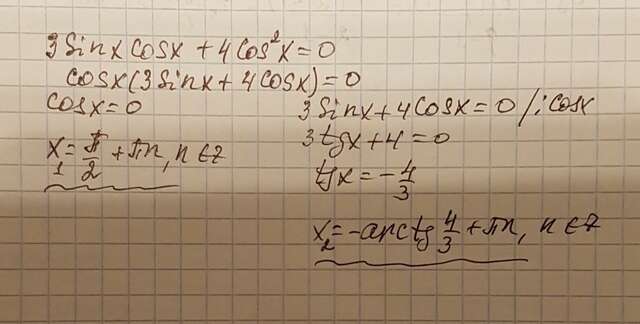 3 sin x cos x + 4 cos² x = 0
cos x (3 sin x + 4 cos x) = 0
cos x = 0
x₁ = π/2 + πn, n ∈ Z
3 sin x + 4 cos x = 0 / : cos x
3 tg x + 4 = 0
tg x = - 4/3
x₂ = - arctg 4/3 + πn, n ∈ Z